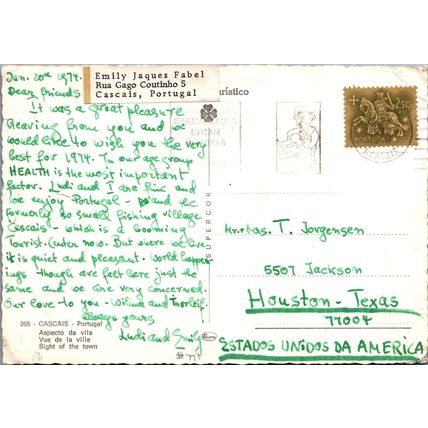 Jan. 20th 1974.
Dear friends
It was a great pleasure
hearing from you and we
would like to wish you the very
best for 1974. In our age group
HEALTH is the most important
factor. Ludi and I are fine and
we enjoy Portugal - and the
formerly so small fishing village
Cascais - which is a booming
Tourist. Center now. But where we live
it is quiet and pleasant. World happen-
ings though are felt here just the
same and we are very concerned.
Our love to you - Wilma and Thorleif.
always yours
Ludi and Emily
265 - CASCAIS - Portugal
Aspecto da vila
Vue de la ville
Sight of the town
Emily Jaques Fabel
Rua Gago Coutinho 5
Cascais, Portugal
rístico
EVITAM
SUPERCOR
2$50
CASCAIS
Mr. Mrs. T. Jorgensen
5507 Jackson
Houston - Texas
77004
ESTADOS UNIDOS DA AMERICA